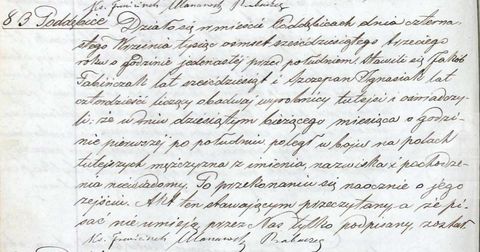 Ks. Franciszek
83 Poddębice Działo się w mieście Poddębicach dnia czterna=
stego Września tysiąc ośmset sześćdziesiątego trzeciego
roku o godzinie jedenastej przed południem. Stawili się Jakób
Tabińczak lat sześćdziesiąt i Szczepan Ignasiak lat
czterdzieści liczący obadwaj wyrobnicy tutejsi i oświadczy=
li, że w dniu dziesiątym bieżącego miesiąca o godzi=
nie pierwszej po południu poległ w boju na polach
tutejszych mężczyzna z imienia, nazwiska i pochodze=
nia niewiadomy. Po przekonaniu się naocznie o jego
zejściu Akt ten stawającym przeczytany a że pi=
sać nie umieją przez Nas tylko podpisany został
Ks. Franciszek